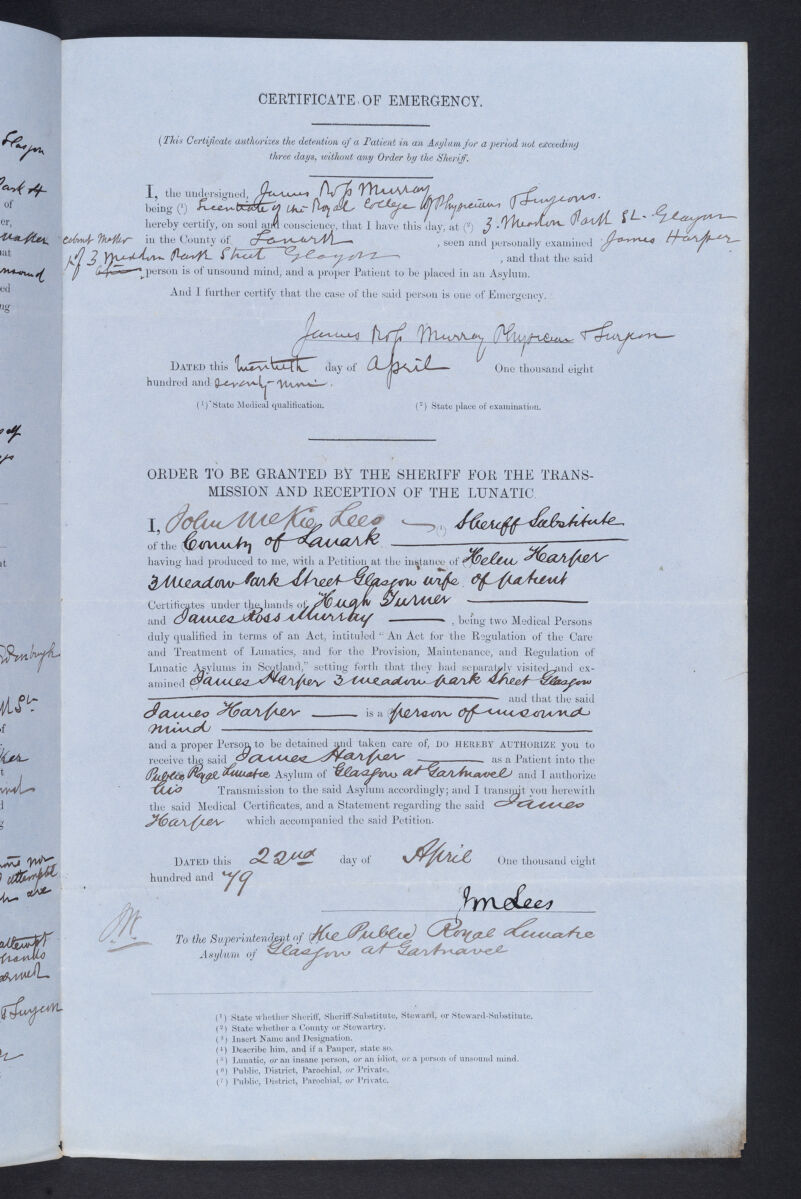 CERTIFICATE OF EMERGENCY.
(This Certificate authorizes the detention of a Patient in an Asylum for a period not exceeding
three days, without any Order by the Sheriff.
I, the undersigned, James Ross Murray
being (1) Licentiate of the Royal College of Physicians & Surgeons.
hereby certify, on soul and conscience, that I have this day, at (2) 3. Meadow Park St. Glasgow
in the County of Lanark, seen and personally examined James Harper
cabinet maker
of 3 Meadow Park Street Glasgow, and that the said
person is of unsound mind, and a proper Patient to be placed in an Asylum.
And I further certify that the case of the said person is one of Emergency.
James Ross Murray Physician & Surgeon
DATED this twentieth day of April One thousand eight
hundred and seventy-nine.
(1) State Medical qualification. (2) State place of examination.
ORDER TO BE GRANTED BY THE SHERIFF FOR THE TRANS-
MISSION AND RECEPTION OF THE LUNATIC.
I, John McKie Lees (1) Sheriff Substitute
of the County of Lanark
having had produced to me, with a Petition at the instance of Helen Harper
3 Meadow Park Street Glasgow wife of patient
Certificates under the hands of Hugh Turner
and James Ross Murray, being two Medical Persons
duly qualified in terms of an Act, intituled "An Act for the Regulation of the Care
and Treatment of Lunatics, and for the Provision, Maintenance, and Regulation of
Lunatic Asylums in Scotland," setting forth that they had separately visited and ex-
amined James Harper 3 meadow park Street Glasgow
and that the said
James Harper is a person of unsound
mind
and a proper Person to be detained and taken care of, DO HEREBY AUTHORIZE you to
receive the said James Harper as a Patient into the
Public Royal Lunatic Asylum of Glasgow at Gartnavel and I authorize
his Transmission to the said Asylum accordingly; and I transmit you herewith
the said Medical Certificates, and a Statement regarding the said James
Harper which accompanied the said Petition.
DATED this 22nd day of April One thousand eight
hundred and 79
J M Lees
To the Superintendent of the Public Royal Lunatic
Asylum of Glasgow at Gartnavel
(1) State whether Sheriff, Sheriff-Substitute, Steward, or Steward-Substitute.
(2) State whether a County or Stewartry.
(3) Insert Name and Designation.
(4) Describe him, and if a Pauper, state so.
(5) Lunatic, or an insane person, or an idiot, or a person of unsound mind.
(6) Public, District, Parochial, or Private.
(7) Public, District, Parochial, or Private.